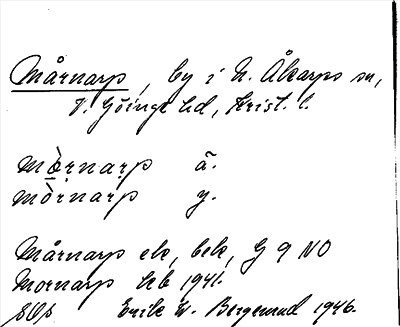 Mårnarp, by i N. Åkarps sn,
V. Göinge hd, Krist. l.
mò̢rnar̥p ä.
mòrnar̥p y.
Mårnarp ek, bek, G 9 NO
Mornarp hb 1941.
SOs Erik W. Bergmund 1946.